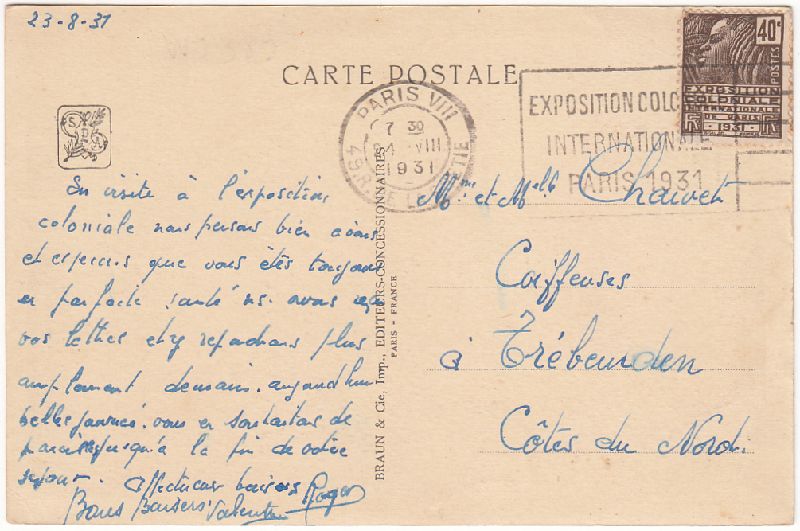 23-8-31
CARTE POSTALE
40c
POSTES
EXPOSITION
COLONIALE
INTERNATIONALE
DE PARIS
1931
PARIS VIII
7 30
VIII
1931
EXPOSITION COLO
INTERNATIONALE
PARIS 1931
En visite à l'exposition
coloniale nous pensons bien à vous
et espérons que vous êtes toujours
en parfaite santé ns. avons reçu
vos lettres et y répondrons plus
amplement demain. aujourd'hui
belle journée. vous en souhaitons de
pareilles jusqu'à la fin de votre
séjour. affectueux baisers Roger
Bons Baisers Valentine
BRAUN & Cie, Imp., EDITEURS-CONCESSIONNAIRES
PARIS - FRANCE
Mme et Mlle Chauvet
Coiffeuses
à Trébeurden
Côtes du Nord.